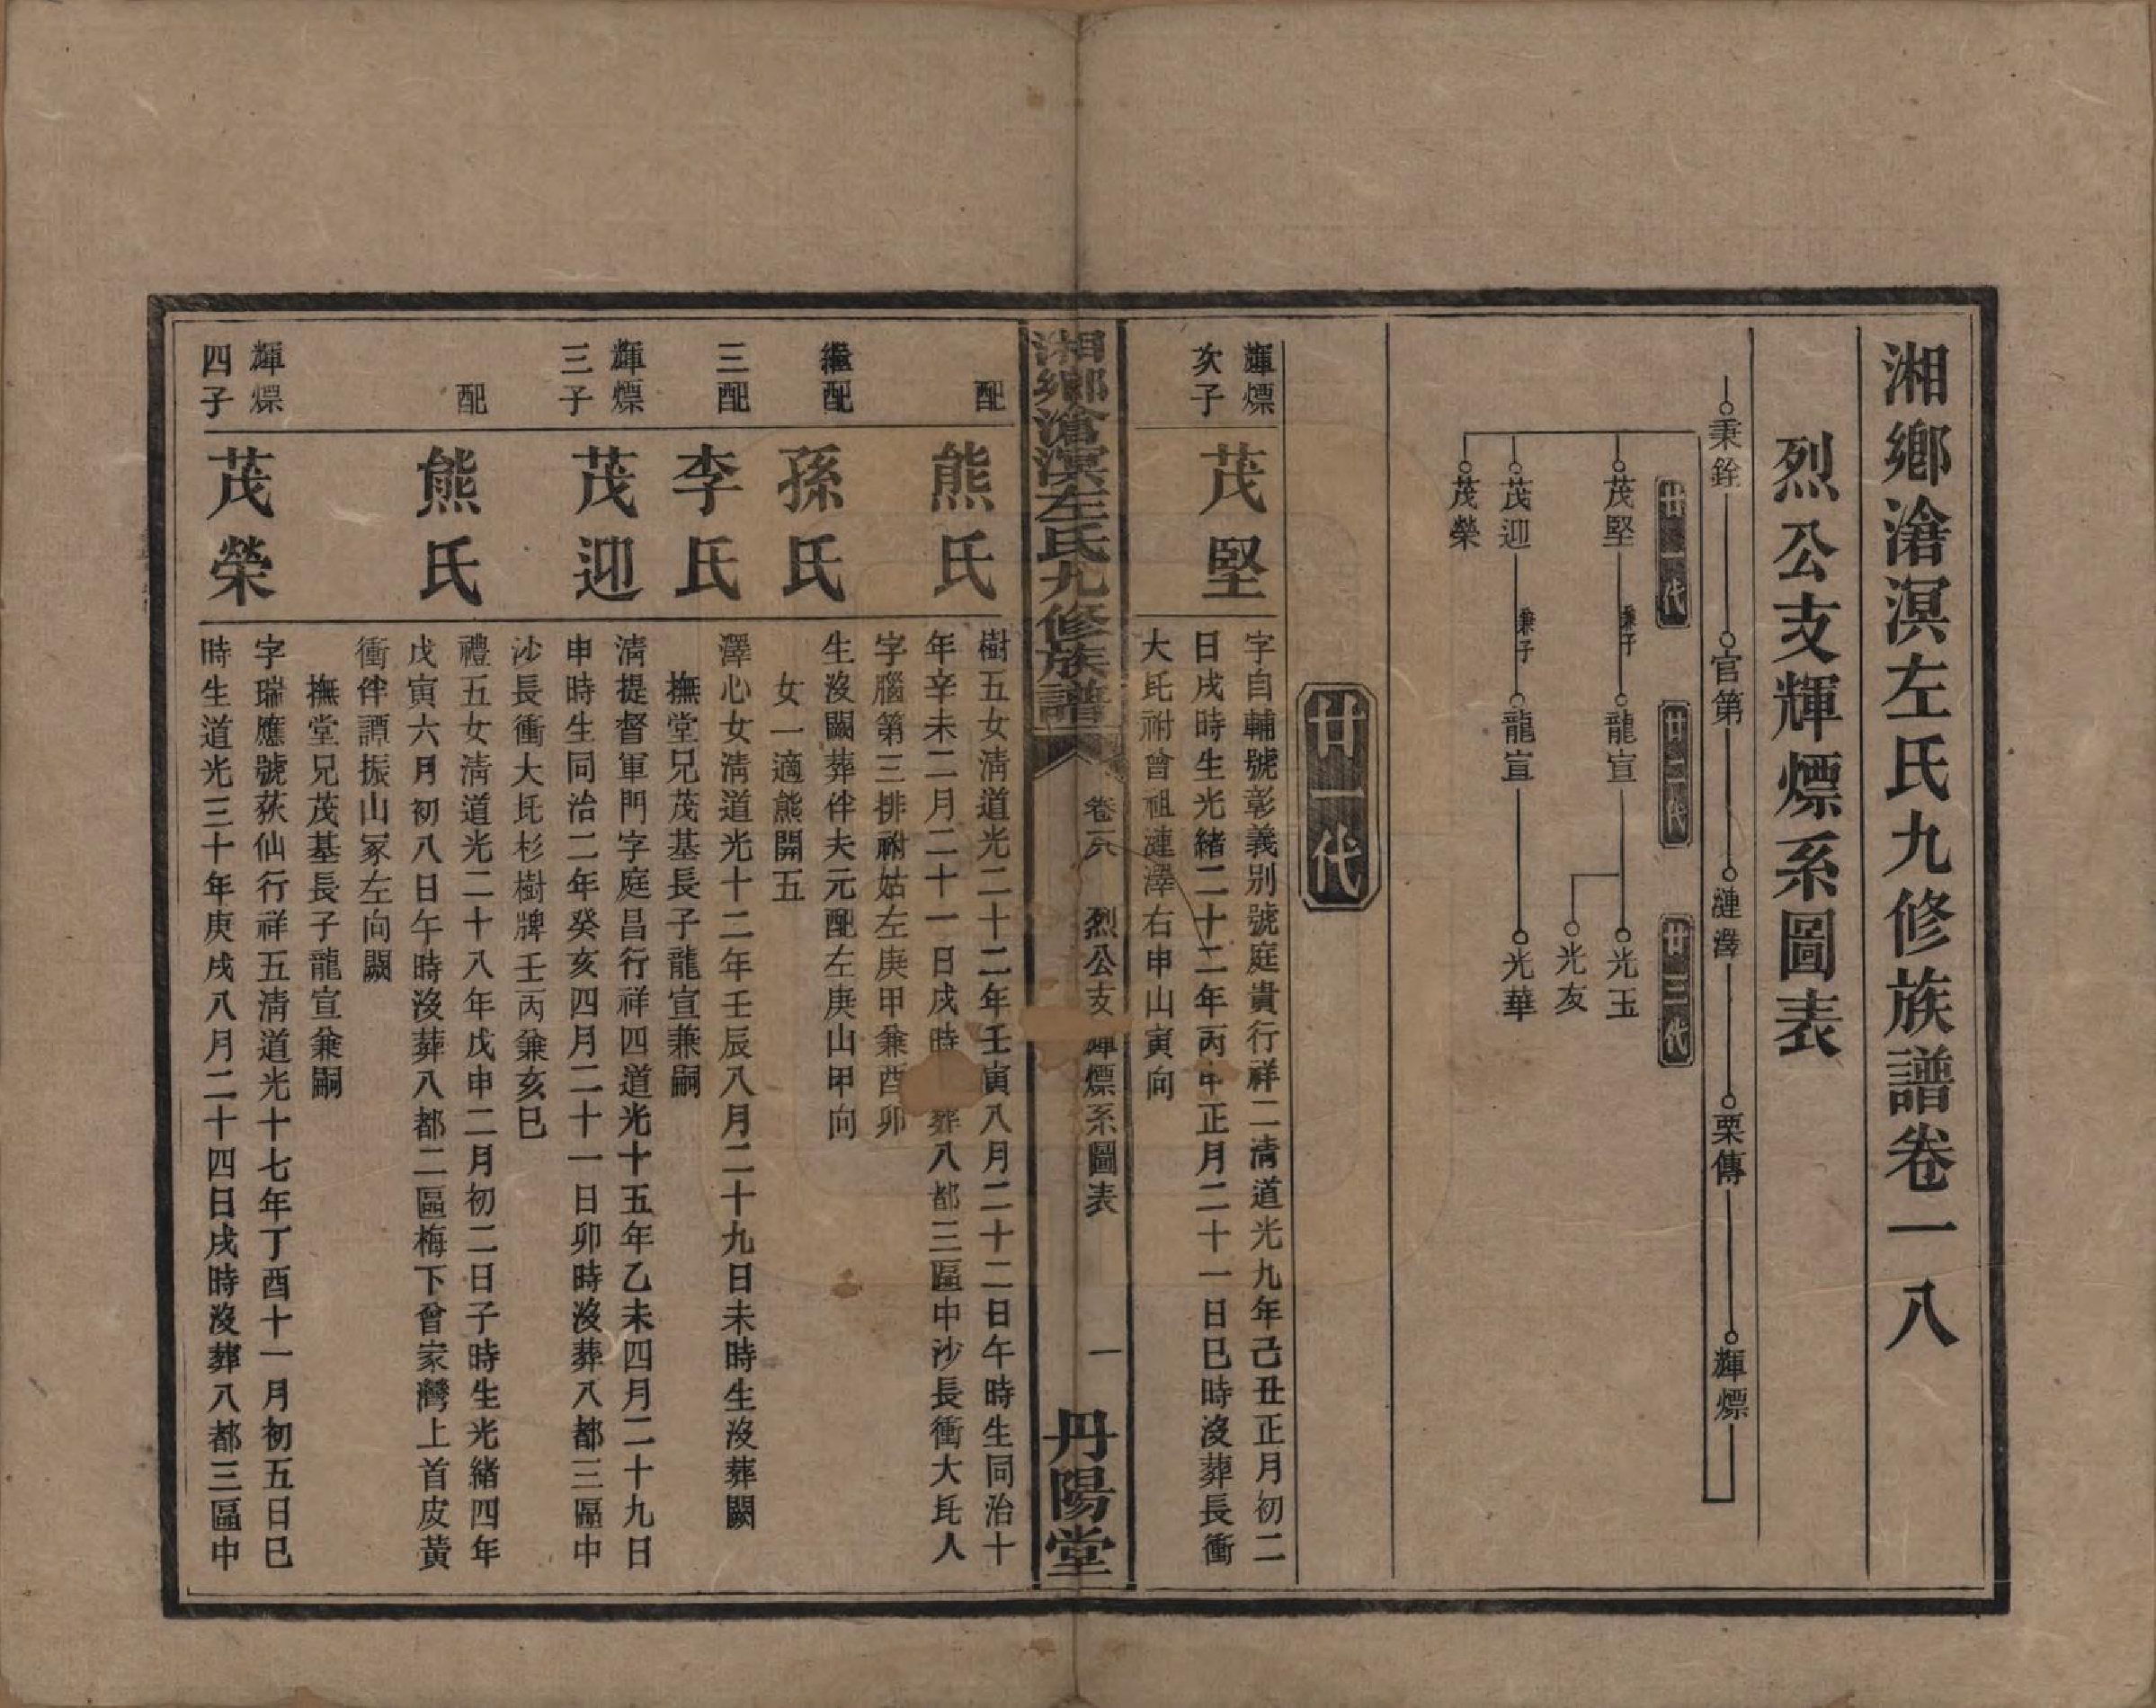 湘鄉滄溟左氏九修族譜卷一八
烈公支輝熛系圖表
秉銓 官第 漣澤 栗傳 輝熛
廿一代 廿二代 廿三代
茂堅 兼子 龍宣 光玉
光友
茂迎 兼子 龍宣 光華
茂榮
廿一代
輝熛
次子
茂堅
字自輔號彰義別號庭貴行祥二清道光九年己丑正月初二
日戌時生光緒二十二年丙申正月二十一日巳時沒葬長衝
大㘰祔曾祖漣澤右申山寅向
湘鄉滄溟左氏九修族譜 卷一八 烈公支輝熛系圖表 一 丹陽堂
配
熊氏
樹五女清道光二十二年壬寅八月二十二日午時生同治十
年辛未二月二十一日戌時 葬八都三區中沙長衝大㘰人
字腦第三排祔姑左庚甲兼酉卯
繼配
孫氏
生沒闕葬伴夫元配左庚山甲向
女一適熊開五
三配
李氏
澤心女清道光十二年壬辰八月二十九日未時生沒葬闕
撫堂兄茂基長子龍宣兼嗣
輝熛
三子
茂迎
清提督軍門字庭昌行祥四道光十五年乙未四月二十九日
申時生同治二年癸亥四月二十一日卯時沒葬八都三區中
沙長衝大㘰杉樹牌壬丙兼亥巳
配
熊氏
禮五女清道光二十八年戊申二月初二日子時生光緒四年
戊寅六月初八日午時沒葬八都二區梅下曾家灣上首皮黃
衝伴譚振山冢左向闕
撫堂兄茂基長子龍宣兼嗣
輝熛
四子
茂榮
字瑞應號荻仙行祥五清道光十七年丁酉十一月初五日巳
時生道光三十年庚戌八月二十四日戌時沒葬八都三區中